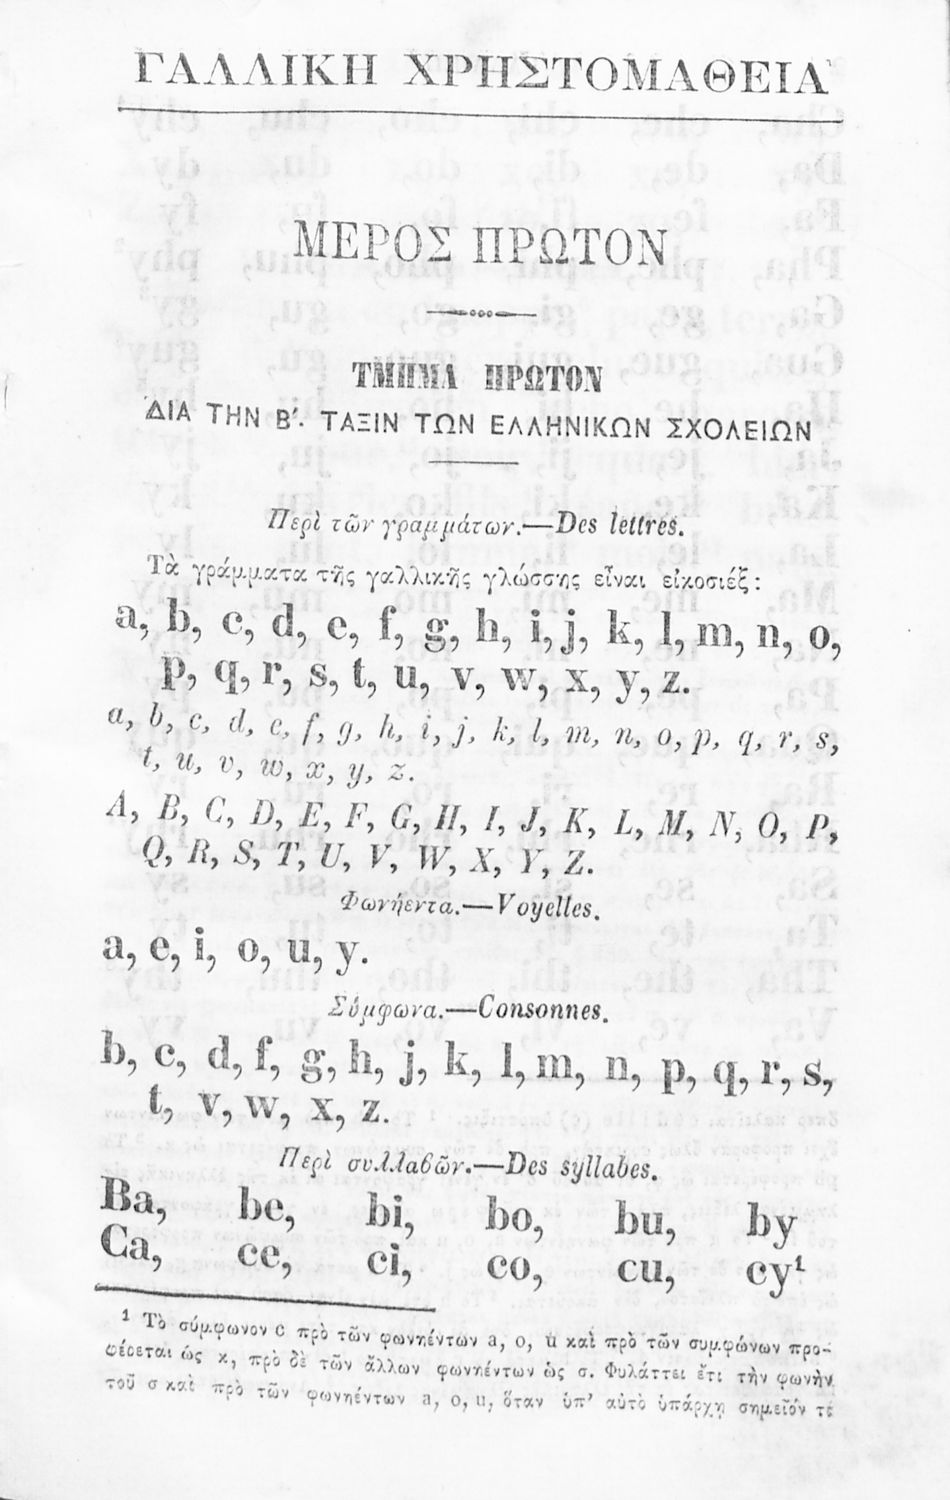 ΓΑΛΛΙΚΗ ΧΡΗΣΤΟΜΑΘΕΙΑ
ΜΕΡΟΣ ΠΡΩΤΟΝ
ΤΜΗΜΑ ΠΡΩΤΟΝ
ΔΙΑ ΤΗΝ Β′. ΤΑΞΙΝ ΤΩΝ ΕΛΛΗΝΙΚΩΝ ΣΧΟΛΕΙΩΝ
Περὶ τῶν γραμμάτων.—Des lettres.
Τὰ γράμματα τῆς γαλλικῆς γλώσσης εἶναι εἰκοσιέξ:
a, b, c, d, e, f, g, h, i, j, k, l, m, n, o,
p, q, r, s, t, u, v, w, x, y, z.
a, b, c, d, e, f, g, h, i, j, k, l, m, n, o, p, q, r, s,
t, u, v, w, x, y, z.
A, B, C, D, E, F, G, H, I, J, K, L, M, N, O, P,
Q, R, S, T, U, V, W, X, Y, Z.
Φωνήεντα.—Voyelles.
a, e, i, o, u, y.
Σύμφωνα.—Consonnes.
b, c, d, f, g, h, j, k, l, m, n, p, q, r, s,
t, v, w, x, z.
Περὶ συλλαβῶν.—Des syllabes.
Ba, be, bi, bo, bu, by
Ca, ce, ci, co, cu, cy¹
¹ Τὸ σύμφωνον c πρὸ τῶν φωνηέντων a, o, u καὶ πρὸ τῶν συμφώνων προ-
φέρεται ὡς κ, πρὸ δὲ τῶν ἄλλων φωνηέντων ὡς σ. Φυλάττει ἔτι τὴν φωνὴν
τοῦ σ καὶ πρὸ τῶν φωνηέντων a, o, u, ὅταν ὑπ’ αὐτὸ ὑπάρχῃ σημεῖόν τι